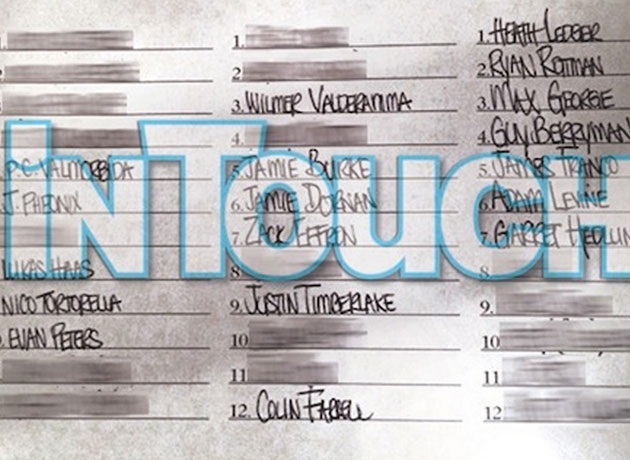 P.C. VALMORBIDA
J. PHEONIX
LUKAS HAAS
NICO TORTORELLA
EVAN PETERS
1.
2
3. WILMER
4.
5. JAMIE BURKE
6. JAMIE DORNAN
7. ZACK EFFRON
8
9. JUSTIN TIMBERLAKE
10
11
12. COLIN FARRELL
1. HEATH LEDGER
2. RYAN ROTTMAN
3. MAX GEORGE
4. GUY BERRYMAN
5. JAMES FRANCO
6. ADAM LEVINE
7. GARRET HEDLUN
8
9.
10
11
12
InTouch